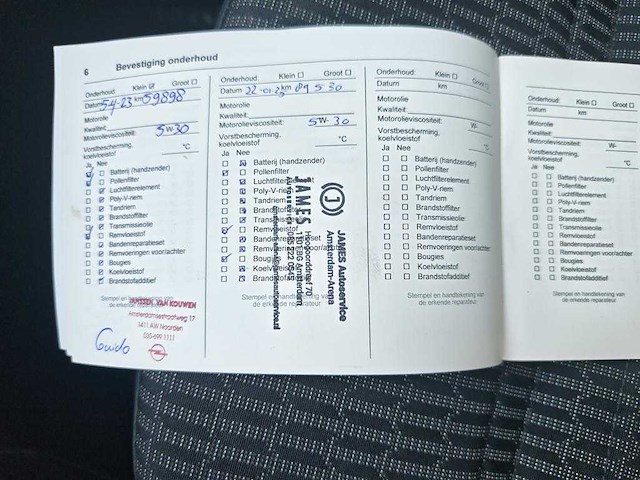 6 Bevestiging onderhoud
Onderhoud: Klein Groot
Datum 5-4-23 km 59898
Motorolie
Kwaliteit:
Motorolieviscositeit: 5 W- 30
Vorstbescherming,
koelvloeistof °C
Ja Nee
Batterij (handzender)
Pollenfilter
Luchtfilterelement
Poly-V-riem
Tandriem
Brandstoffilter
Transmissieolie
Remvloeistof
Bandenreparatieset
Remvoeringen voor/achter
Bougies
Koelvloeistof
Brandstofadditief
Stempel en handtekening van
de erkende reparateur
JANSSEN VAN KOUWEN
Amsterdamsestraatweg 17
1411 AW Naarden
035-699 1111
Guido
Onderhoud: Klein Groot
Datum km
Motorolie
Kwaliteit:
Motorolieviscositeit: 5 W- 30
Vorstbescherming,
koelvloeistof °C
Ja Nee
Batterij (handzender)
Pollenfilter
Luchtfilterelement
Poly-V-riem
Tandriem
Brandstoffilter
Transmissieolie
Remvloeistof
Bandenreparatieset
Remvoeringen voor/achter
Bougies
Koelvloeistof
Brandstofadditief
Stempel en handtekening van
de erkende reparateur
JAMES Autoservice
Amsterdam-Arena
Hoogoorddreef 70
1101 BG Amsterdam
JAMES
AUTOSERVICE
Onderhoud: Klein Groot
Datum km
Motorolie
Kwaliteit:
Motorolieviscositeit: W-
Vorstbescherming,
koelvloeistof °C
Ja Nee
Batterij (handzender)
Pollenfilter
Luchtfilterelement
Poly-V-riem
Tandriem
Brandstoffilter
Transmissieolie
Remvloeistof
Bandenreparatieset
Remvoeringen voor/achter
Bougies
Koelvloeistof
Brandstofadditief
Stempel en handtekening van
de erkende reparateur
Onderhoud: Klein Groot
Datum km
Motorolie
Kwaliteit:
Motorolieviscositeit: W-
Vorstbescherming,
koelvloeistof °C
Ja Nee
Batterij (handzender)
Pollenfilter
Luchtfilterelement
Poly-V-riem
Tandriem
Brandstoffilter
Transmissieolie
Remvloeistof
Bandenreparatieset
Remvoeringen voor/achter
Bougies
Koelvloeistof
Brandstofadditief
Stempel en handtekening van
de erkende reparateur